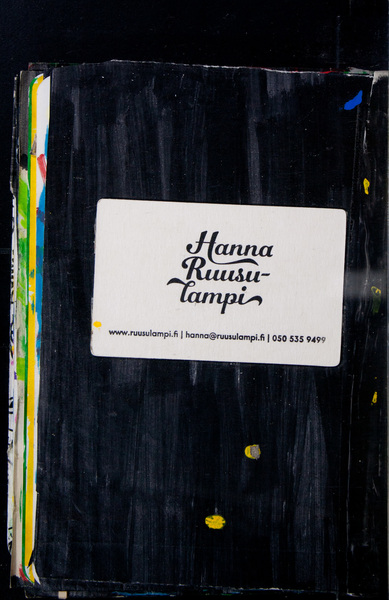 Hanna
Ruusu-
lampi
www.ruusulampi.fi | hanna@ruusulampi.fi | 050 535 9499